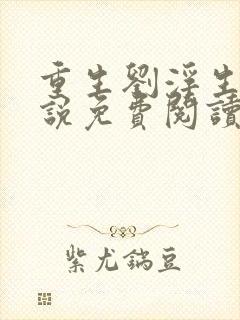 重生劉淫生
說免費閱讀
紫尤鎬豆